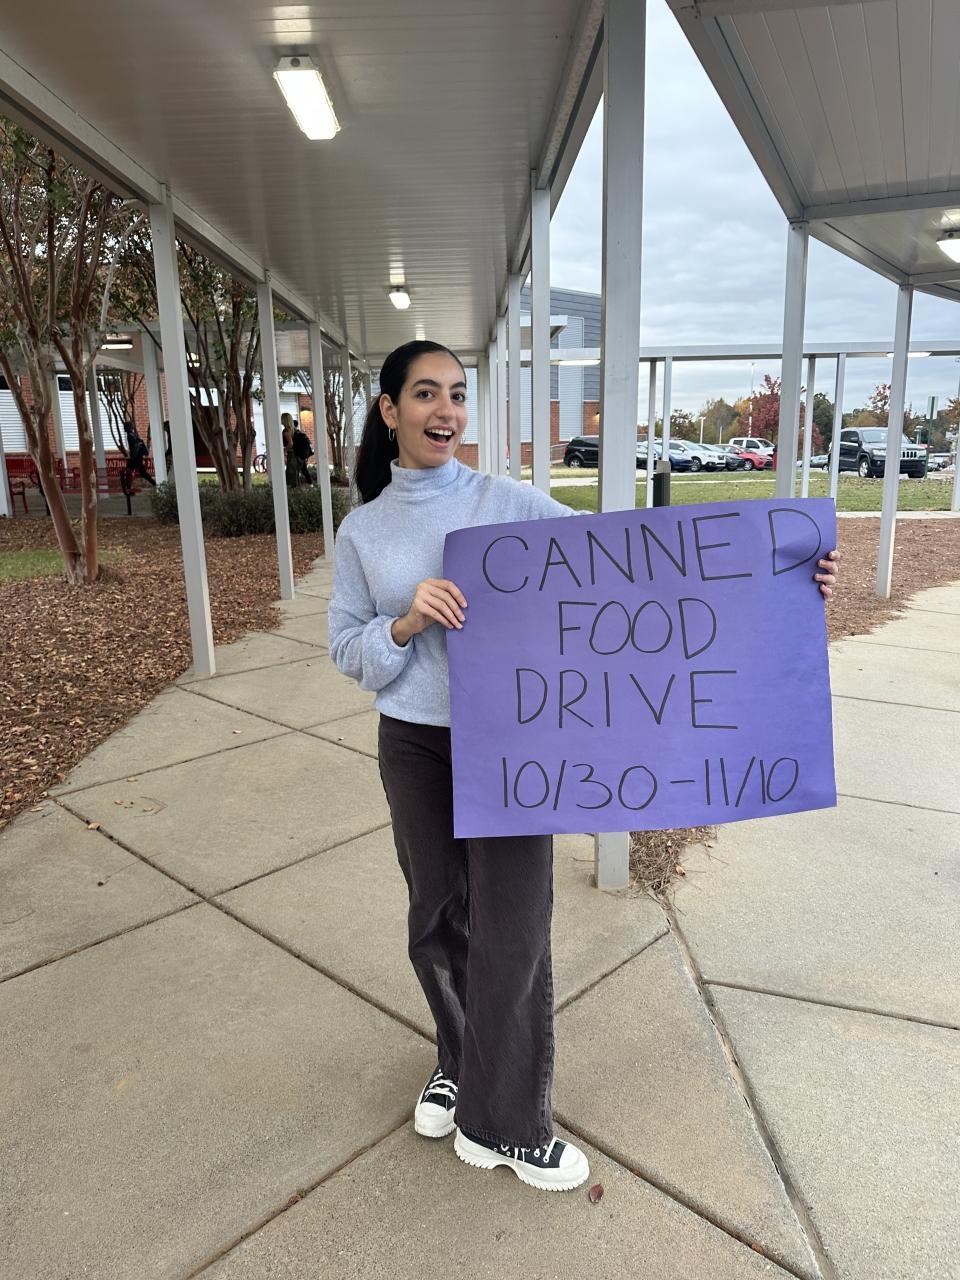 CANNED
FOOD
DRIVE
10/30-11/10